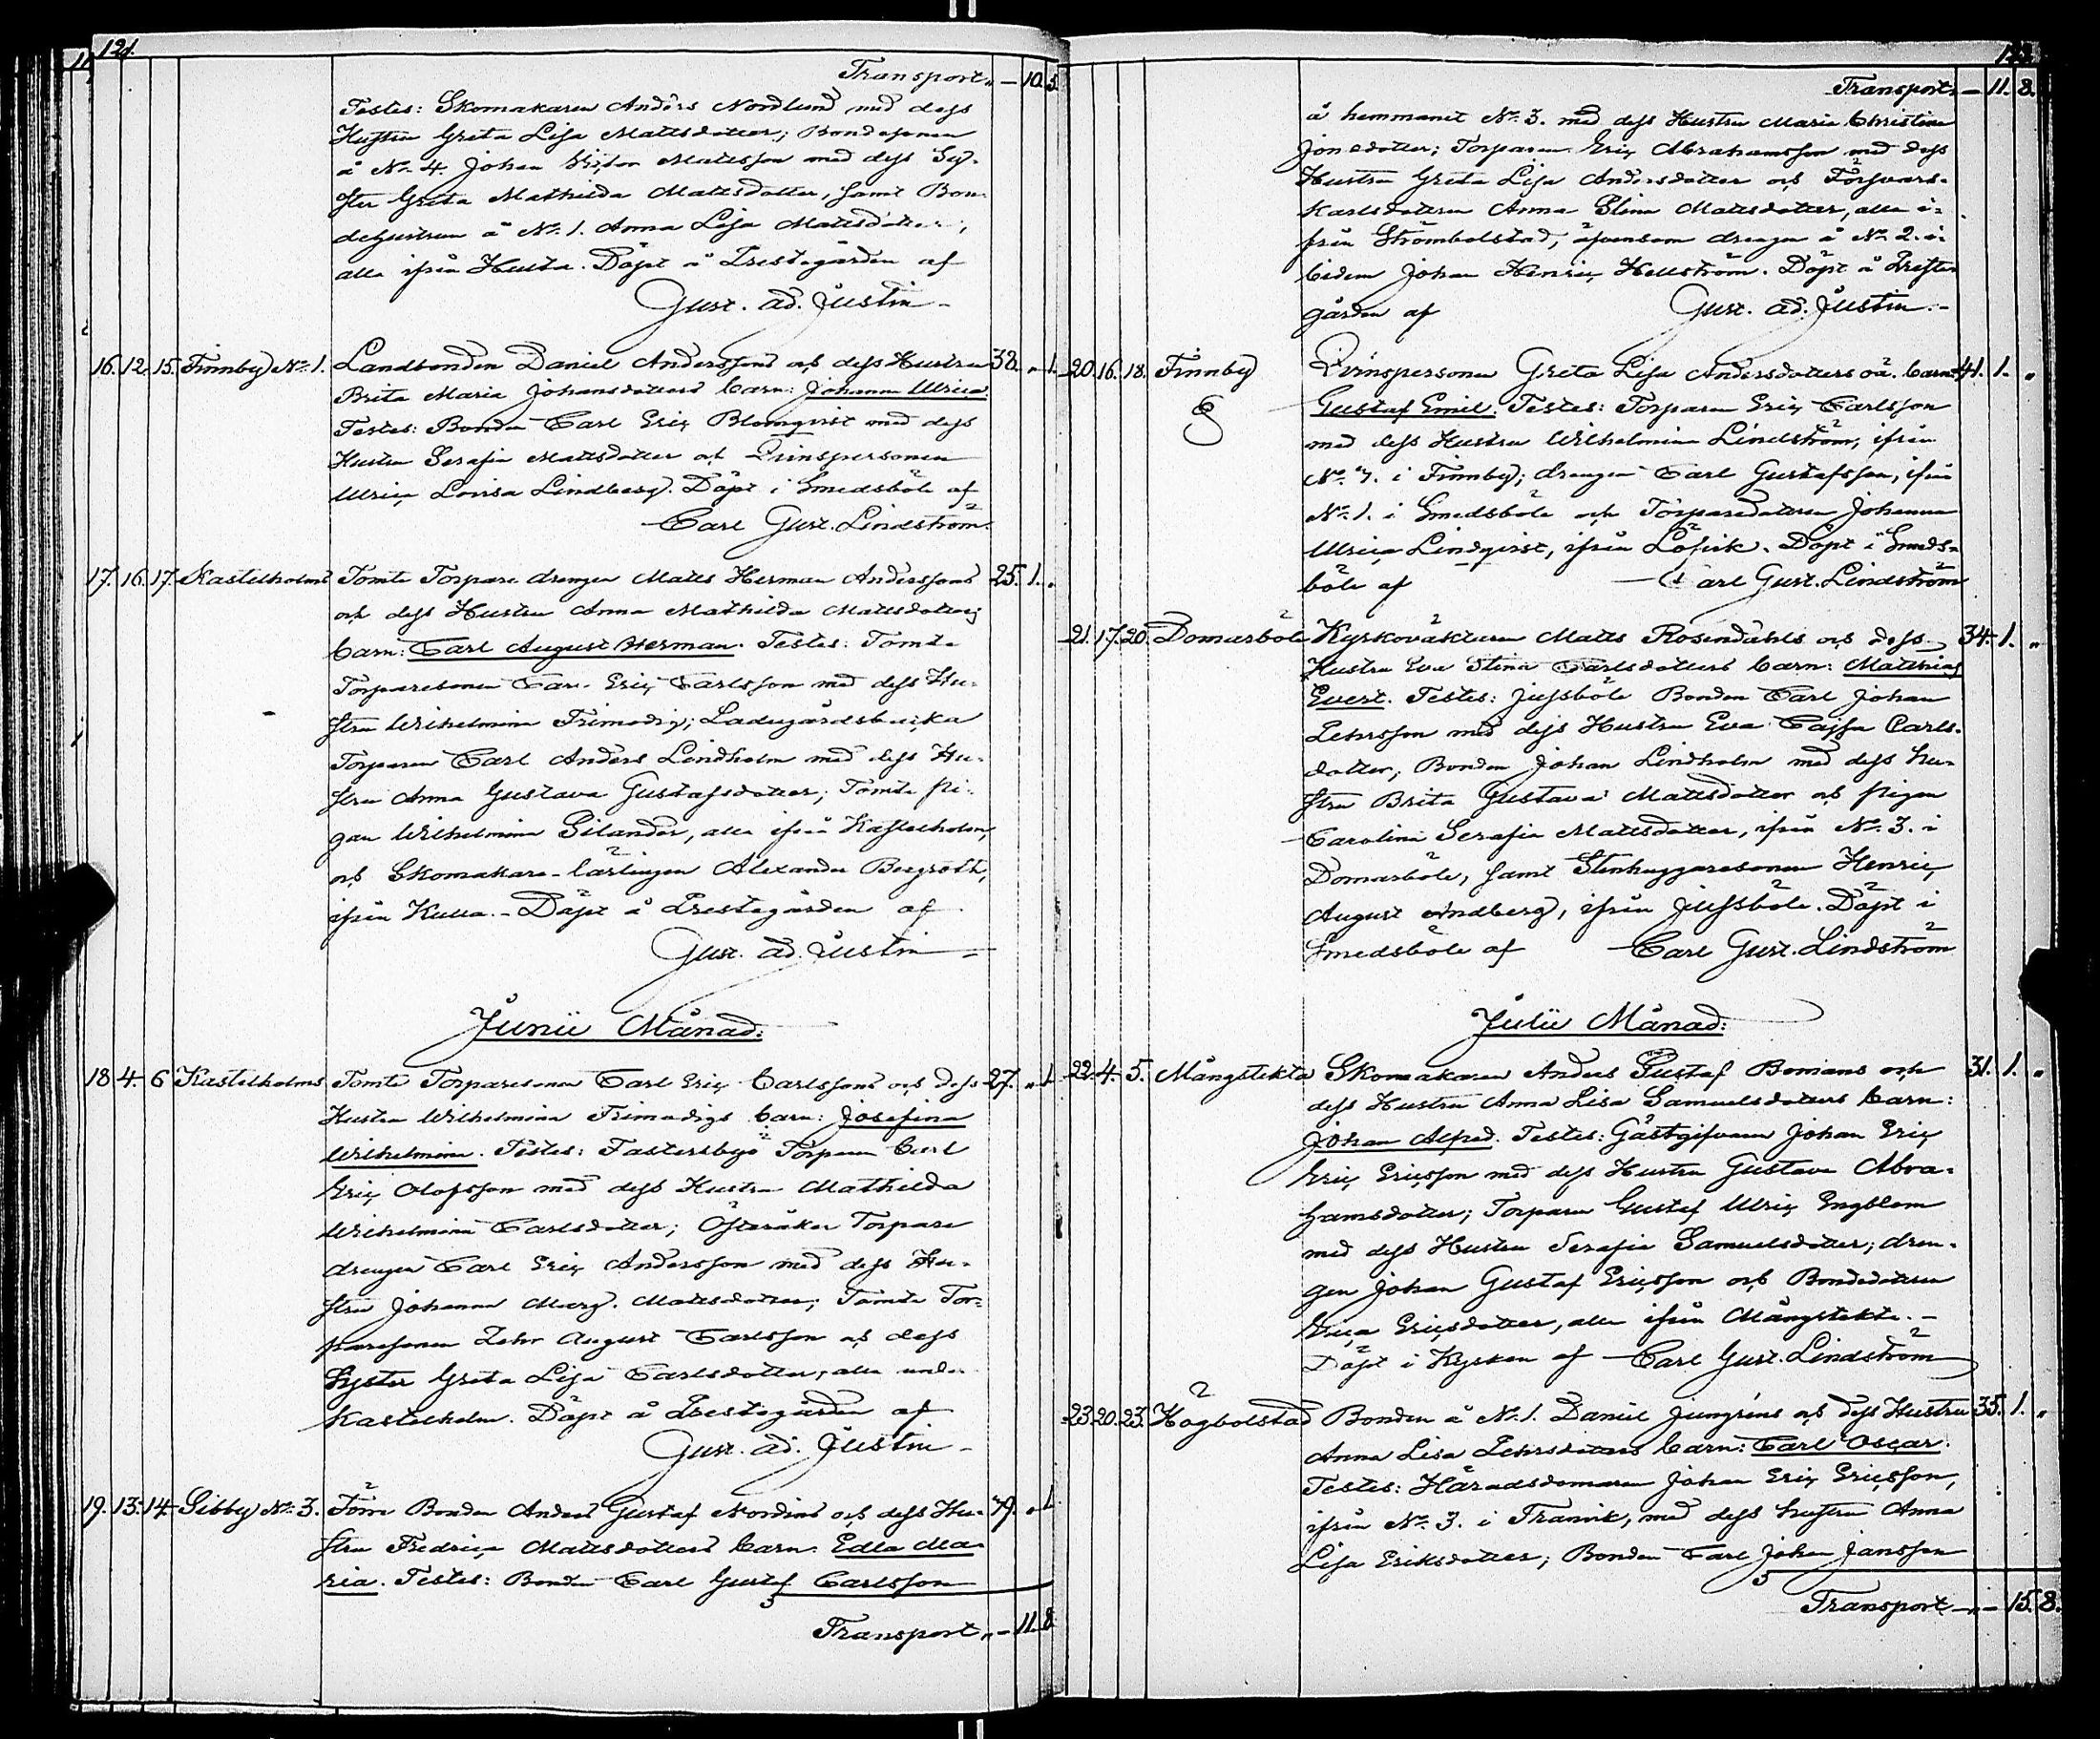 121.
Transport „ — 10. 5.
Testes: Skomakaren Anders Nordlund med dess
Hustru Greta Lisa Mattsdotter; Bondesonen
å No. 4. Johan Victor Mattsson med dess Sy-
ster Greta Mathilda Mattsdotter, samt Bon-
dehustrun å No. 1. Anna Lisa Mattsdotter;
alla ifrån Hulta. Döpt å Prestegården af
Gust. Ad. Justin
16. 12. 15. Finnby No. 1. Landbonden Daniel Anderssons och dess Hustru 38. „ 1.
Brita Maria Johansdotters barn: Johanna Ulrica.
Testes: Bonden Carl Eric Blomqvist med dess
Hustru Serafia Mattsdotter och Qvinspersonen
Ulrica Lovisa Lindberg. Döpt i Smedsböle af
Carl Gust. Lindström.
17. 16. 17. Kastelholms Tomte Torpare drengen Matts Herman Anderssons 25. 1. „
och dess Hustru Anna Mathilda Mattsdotters
barn: Carl August Herman. Testes: Tomte
Torparesonen Carl Eric Carlsson med dess Hu-
stru Wilhelmina Frimodig; Ladugårdsbacka
Torparen Carl Anders Lindholm med dess Hu-
stru Anna Gustava Gustafsdotter; Tomte pi-
gan Wilhelmina Silander, alla ifrån Kastelholm,
och Skomakare-lärlingen Alexander Bergroth,
ifrån Kulla. - Döpt å Prestegården af
Gust. Ad. Justin
Junii Månad:
18. 4. 6 Kastelholms Tomte Torparesonen Carl Eric Carlssons och dess 27. „ 1.
Hustru Wilhelmina Frimodigs barn: Josefina
Wilhelmina. Testes: Fastersby Torparen Carl
Eric Olofsson med dess Hustru Mathilda
Wilhelmina Carlsdotter; Österåker Torpare
drengen Carl Eric Andersson med dess Hu-
stru Johanna Marg. Mattsdotter; Tomte Tor-
paresonen Pehr August Carlsson och dess
Syster Greta Lisa Carlsdotter, alla under
Kastelholm. Döpt å Prestegården af
Gust. Ad. Justin
19. 13. 14. Sibby No. 3. Bonden Anders Gustaf Nordins och dess Hu-
stru Fredrica Mattsdotters barn: Edla Ma-
ria. Testes: Bonden Carl Gustaf Carlsson
Transport „ — 11. 8
Transport „ — 11. 8.
å hemmanet No. 3. med dess Hustru Maria Christina
Jonsdotter; Torparen Eric Abrahamsson med dess
Hustru Greta Lisa Andersdotter och Försvars-
Karlsdottren Anna Stina Mattsdotter, alla i-
från Strömbolstad, äfvensom drengen å No. 2. i-
bidem Johan Henric Hellström. Döpt å Preste-
gården af Gust. Ad. Justin. -
20. 16. 18. Finnby Qvinspersonen Greta Lisa Andersdotters oä. barn: 41. 1. „
Gustaf Emil. Testes: Torparen Eric Carlsson
med dess Hustru Wilhelmina Lindström, ifrån
No. 7. i Finnby; drengen Carl Gustafsson, ifrån
No. 1. i Smedsböle och Torparedottren Johanna
Ulrica Lindqvist, ifrån Löfvik. Döpt i Smeds-
böle af Carl Gust. Lindström
21. 17. 20. Domarböle Kyrkoväktaren Matts Rosendahls och dess 34. 1. „
Hustru Eva Stina Carlsdotters barn: Matthias
Evert. Testes: Jussböle Bonden Carl Johan
Pehrsson med dess Hustru Eva Cajsa Carls-
dotter, Bonden Johan Lindholm med dess hu-
stru Brita Gustava Mattsdotter och pigan
Carolina Serafia Mattsdotter, ifrån No. 3. i
Domarböle, samt Stenhuggaresonen Henric
August Lindberg, ifrån Jussböle. Döpt i
Smedsböle af Carl Gust. Lindström
Julii Månad:
22. 4. 5. Mångstekta Skomakaren Anders Gustaf Bomans och 31. 1. „
dess Hustru Anna Lisa Samuelsdotters barn:
Johan Alfred. Testes: Gästgifvaren Johan Eric
Eric Ericsson med dess Hustru Gustava Abra-
hamsdotter; Torparen Gustaf Ulric Engblom
med dess Hustru Serafia Samuelsdotter; dren-
gen Johan Gustaf Ericsson och Bondedottren
Erica Ericsdotter, alla ifrån Mångstekta. -
Döpt i Kyrkan af Carl Gust. Lindström
23. 20. 23. Högbolstad Bonden å No. 1. Daniel Jungréns och dess Hustru 35. 1. „
Anna Lisa Pehrsdotters barn: Carl Oscar.
Testes: Häradsdomaren Johan Eric Ericsson,
ifrån No. 3. i Tranvik, med dess hustru Anna
Lisa Eriksdotter; Bonden Carl Johan Jansson
Transport — „ — 15. 8.